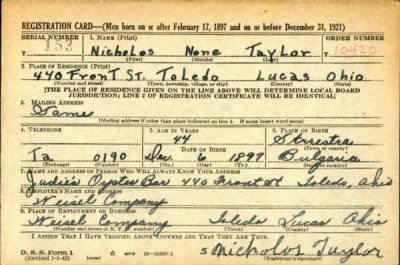 REGISTRATION CARD—(Men born on or after February 17, 1897 and on or before December 31, 1921)
SERIAL NUMBER
1. NAME (Print)
ORDER NUMBER
183
Nicholas None Taylor
10420
(First) (Middle) (Last)
2. PLACE OF RESIDENCE (Print)
440 Front St. Toledo Lucas Ohio
(Number and street) (Town, township, village, or city) (County) (State)
[THE PLACE OF RESIDENCE GIVEN ON THE LINE ABOVE WILL DETERMINE LOCAL BOARD
JURISDICTION; LINE 2 OF REGISTRATION CERTIFICATE WILL BE IDENTICAL]
3. MAILING ADDRESS
Same
[Mailing address if other than place indicated on line 2. If same insert word same]
4. TELEPHONE
5. AGE IN YEARS
6. PLACE OF BIRTH
44
DATE OF BIRTH
Ta. 0190 Dec. 6 1897 Bulgaria
(Exchange) (Number) (Mo.) (Day) (Yr.) (State or country)
7. NAME AND ADDRESS OF PERSON WHO WILL ALWAYS KNOW YOUR ADDRESS
Judie's Oyster Bar 440 Front St Toledo, Ohio
8. EMPLOYER'S NAME AND ADDRESS
Weisel Company
9. PLACE OF EMPLOYMENT OR BUSINESS
Weisel Company Toledo Lucas Ohio
(Number and street or R. F. D. number) (Town) (County) (State)
I AFFIRM THAT I HAVE VERIFIED ABOVE ANSWERS AND THAT THEY ARE TRUE.
D. S. S. Form 1
(Revised 1-1-42) (over)
Nicholos Taylor
(Registrant's signature)